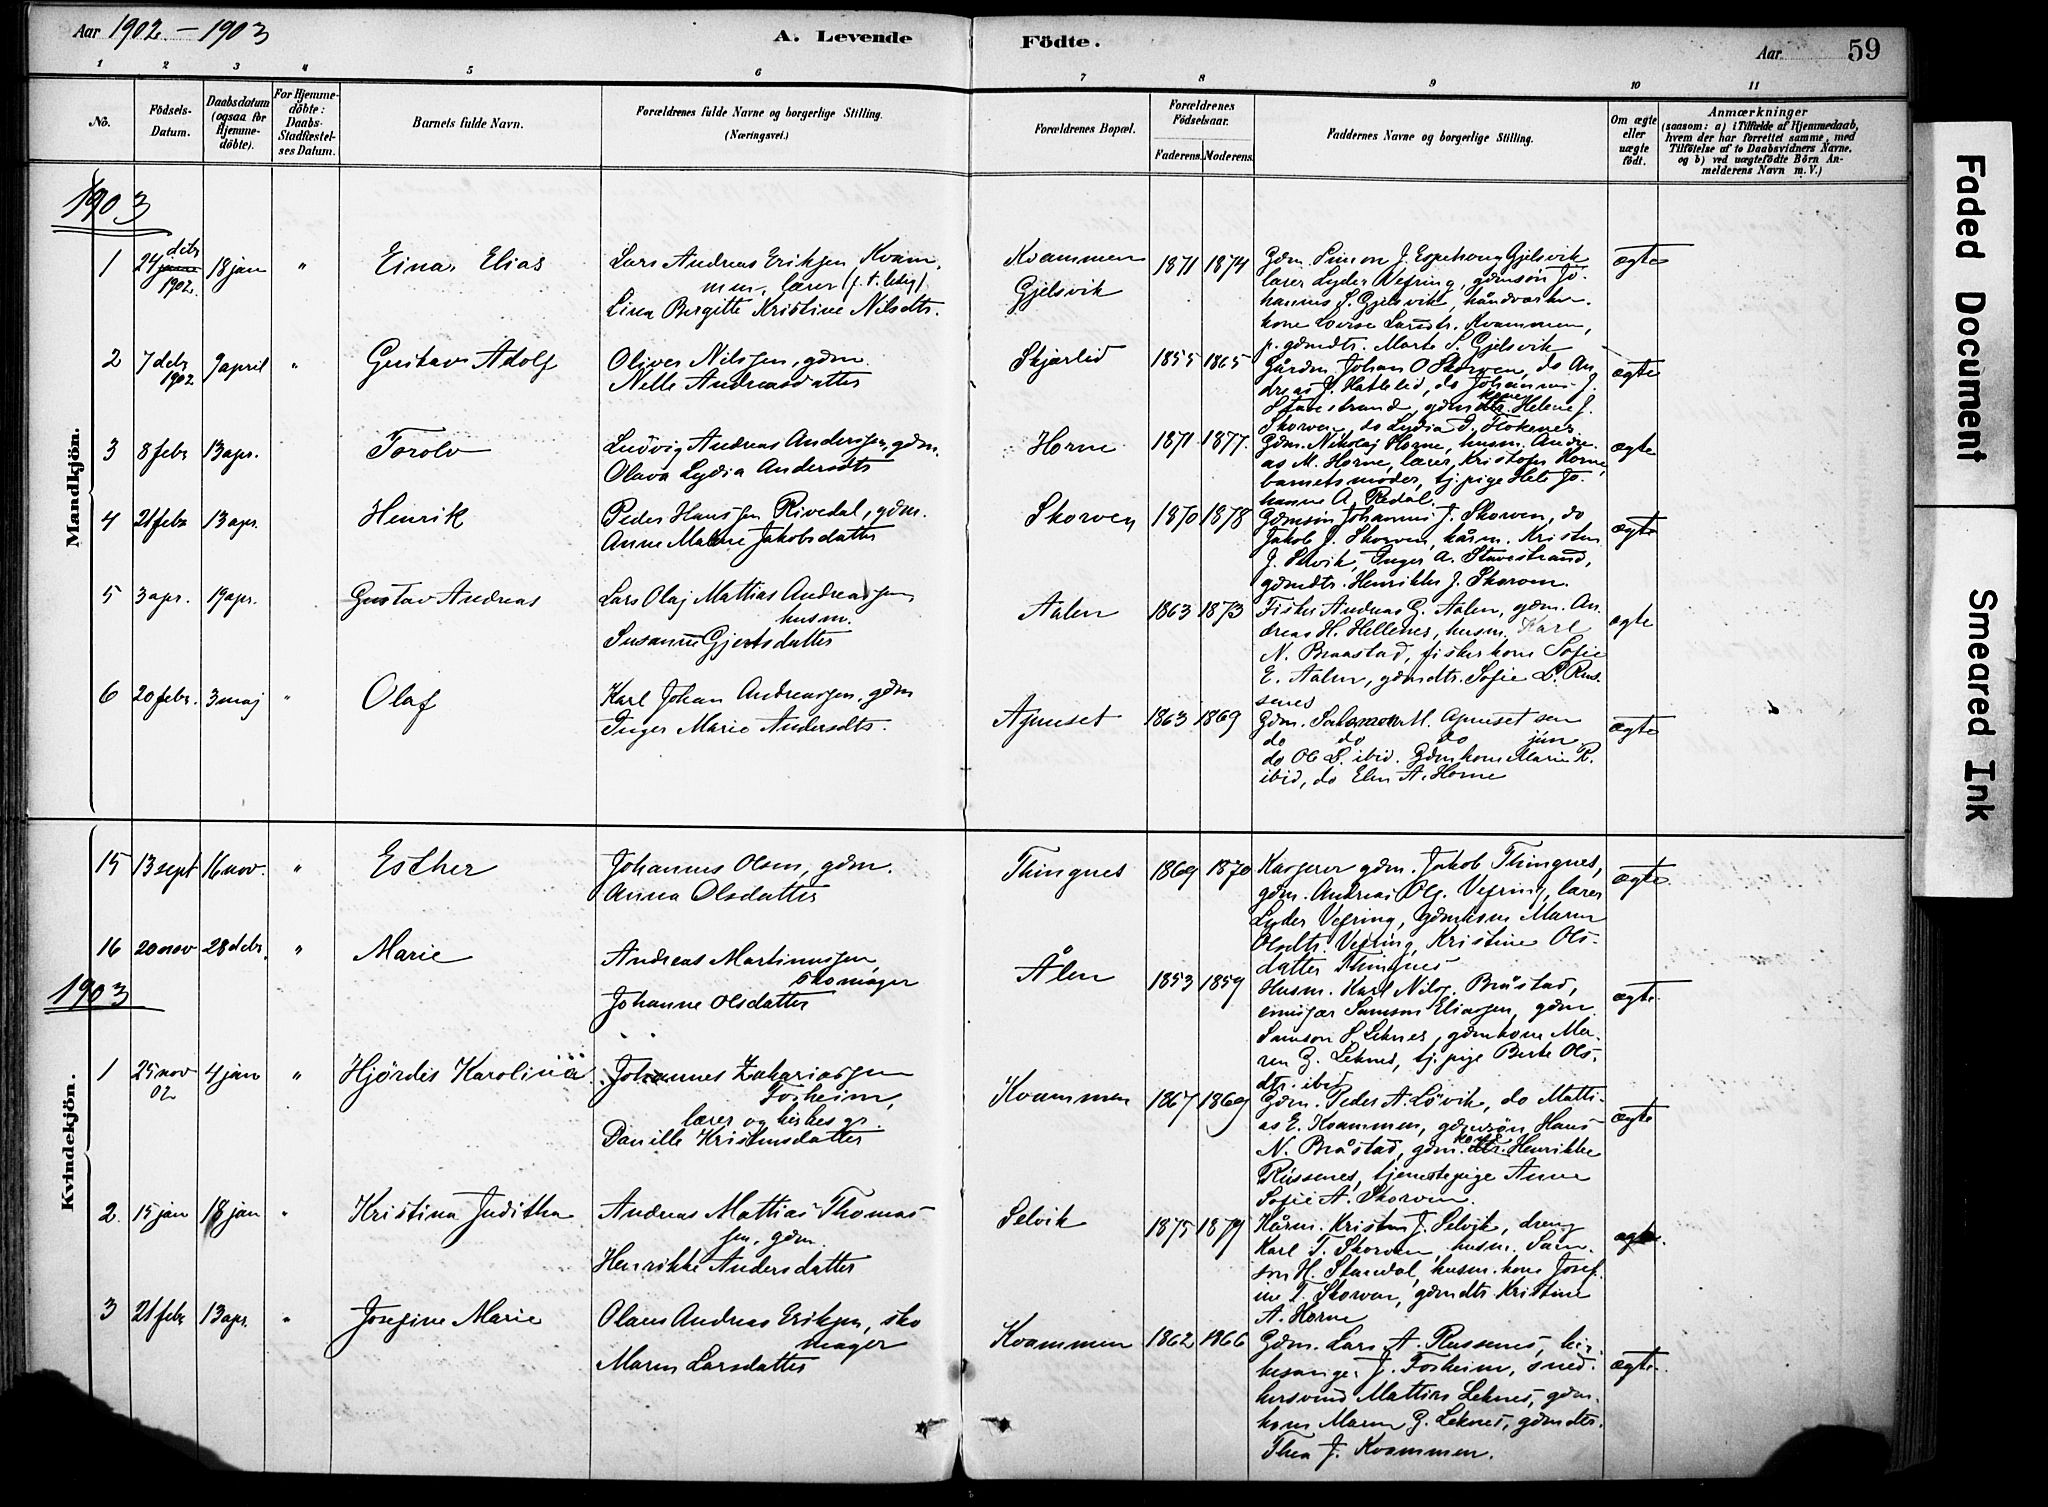 Aar 1902 – 1903
A. Levende
Födte.
Aar
59
1 2 3 4 5 6 7 8 9 10 11
No.
Födsels-Datum.
Daabsdatum (ogsaa för Hjemmedöbte).
For Hjemmedöbte: Daabs-Stadfæstelses Datum.
Barnets fulde Navn.
Forældrenes fulde Navne og borgerlige Stilling.
(Næringsvei.)
Forældrenes Bopæl.
Forældrenes Födselsaar.
Faderens. Moderens.
Faddernes Navne og borgerlige Stilling.
Om ægte eller uægte födt.
Anmærkninger
(saasom: a) i Tilfælde af Hjemmedaab,
hvem der har forrettet samme, med
Tilföielse af to Daabsvidners Navne.
og b) ved uægtefödte Börn An-
melderens Navn m. V.)
1903
Mandkjön.
1 24 debr 1902. 18 jan " Einar Elias
Lars Andreas Eriksen Kvam-
men, lærer (f. t. ledig)
Lina Bergitte Kristine Nilsdtr.
Kvammen
Gjelsvik
1871 1874
Gdm. Simon J. Espehaug Gjelsvik
lærer Lyder Vefring, gdmsøn Jo-
hannes S. Gjelsvik, håndværker-
kone Lovise Larsdtr. Kvammen,
p. gdmdtr. Marte S. Gjelsvik
ægte
2 7 debr 1902 9 april " Gustav Adolf
Oliver Nilssen, gdm.
Nelle Andreasdatter
Skjærlid
1855 1865
Gårdm. Johan O Skorven, do An-
dreas J. Hatlelid, do Johannes J.
Stavestrand, gdmkone Helene J.
Skorven, do Lydia D. Flokenes
ægte
3 8 febr 13 apr. Torolv
Ludvig Andreas Anderssen, gdm.
Olava Lydia Andersdtr
Horne
1871 1877.
Gdm. Nikolaj Horne, husm. Andre-
as M. Horne, lærer Kristofer Horne,
barnets moder, tj. pige Hele Jo-
hanne A. Redal.
ægte
4 21 febr 13 apr. Henrik
Peder Hanssen Rivedal, gdm.
Anne Malene Jakobsdatter
Skorven
1870 1878
Gdmsøn Johannes J. Skorven, do
Jakob J. Skorven, kårm. Kristen
J. Selvik, Inger A. Stavestrand,
gdmdtr. Henrikke J. Skorven.
ægte
5 3 apr. 19 apr. Gustav Andreas
Lars Olaj Mattias Andreassen
husm.
Susanne Gjertsdatter
Aalen
1863 1873
Fisker Andreas G. Aalen, gdm. An-
dreas H. Hellenes, husm. Karl
N. Braastad, fiskerkone Sofie
E. Aalen, gdmdtr. Sofie L. Rus-
senes
ægte
6 20 febr. 3 maj " Olaf
Karl Johan Andreassen, gdm
Inger Marie Andersdtr.
Apneset
1863 1869
Gdm. Salomon M. Apneset sen
do do do jun
do Ole S. ibid. Gdmkone Marie R.
ibid, do Elen A. Horne
ægte
15 13 sept 16 nov. " Esther
Johannes Olsen, gdm.
Anna Olsdatter
Thingnes
1869 1870
Kasserer gdm. Jakob Thingnes,
gdm. Andreas Ols. Vefring, lærer
Lyder Vefring, gdmkone Maren
Olsdtr. Vefring, Kristine Ols-
datter Thingnes
ægte.
16 20 nov 28 debr. " Marie
Andreas Martinussen,
skomager
Johanne Olsdatter
Ålen
1853 1859
Husm. Karl Nils. Bråstad,
Samson Eliassen, gdm
Samson S. Leknes, gdmkone Ma-
ren G. Leknes, tj. pige Berte Ols-
dtr. ibid
ægte.
1903
Kvindekjön.
1 25 nov 02 4 jan " Hjördis Karolina
Johannes Zakariassen
Forheim,
lærer og kirkesgr.
Danielle Kristensdatter
Kvammen
1867 1869
Gdm. Peder A. Lövik, do Matti-
as E. Kvammen, gdmsøn Hans
N. Bråstad, gdm.kone Henrikke
Russenes, tjenestepige Anne
Sofie A. Skorven.
ægte
2. 15 jan 18 jan " Kristina Juditha
Andreas Mattias Thomas-
sen, gdm.
Henrikke Andersdatter
Selvik
1875 1879
Kårm. Kristen J. Selvik, dreng
Karl T. Skorven, husm. Sam-
son H. Standal, husm.kone Josef-
ine T. Skorven, gdmdtr Kristine
A. Horne
ægte.
3 21 febr 13 apr. " Josefine Marie
Olaus Andreas Eriksen, sko
mager
Maren Larsdatter
Kvammen
1862 1866
Gdm. Lars A. Russenes, kir-
kesanger J. Forheim, sned-
kersvend Mattias Leknes, gdm-
kone Maren G. Leknes, gdmdtr.
Thea J. Kvammen.
ægte.
Faded Document
Smeared Ink